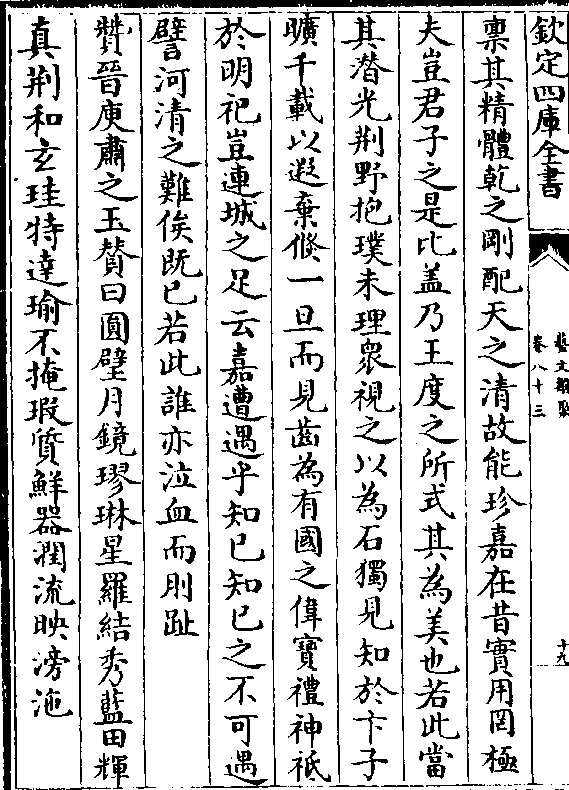 欽定四庫全書
藝文類聚
卷八十三
十九
禀其精體乾之剛配天之清故能珍嘉在昔實用罔極
夫豈君子之是比盖乃王度之所式其為美也若此當
其潛光荆野抱璞未理衆視之以為石獨見知於卞子
曠千載以遐棄倐一旦而見齒為有國之偉寶禮神祇
於明祀豈連城之足云嘉遭遇乎知已知已之不可遇
譬河清之難俟既已若此誰亦泣血而刖趾
贊晉庾肅之玉贊曰圓璧月鏡璆琳星羅結秀藍田輝
真荆和玄珪特達瑜不掩瑕質鮮器潤流映滂沲